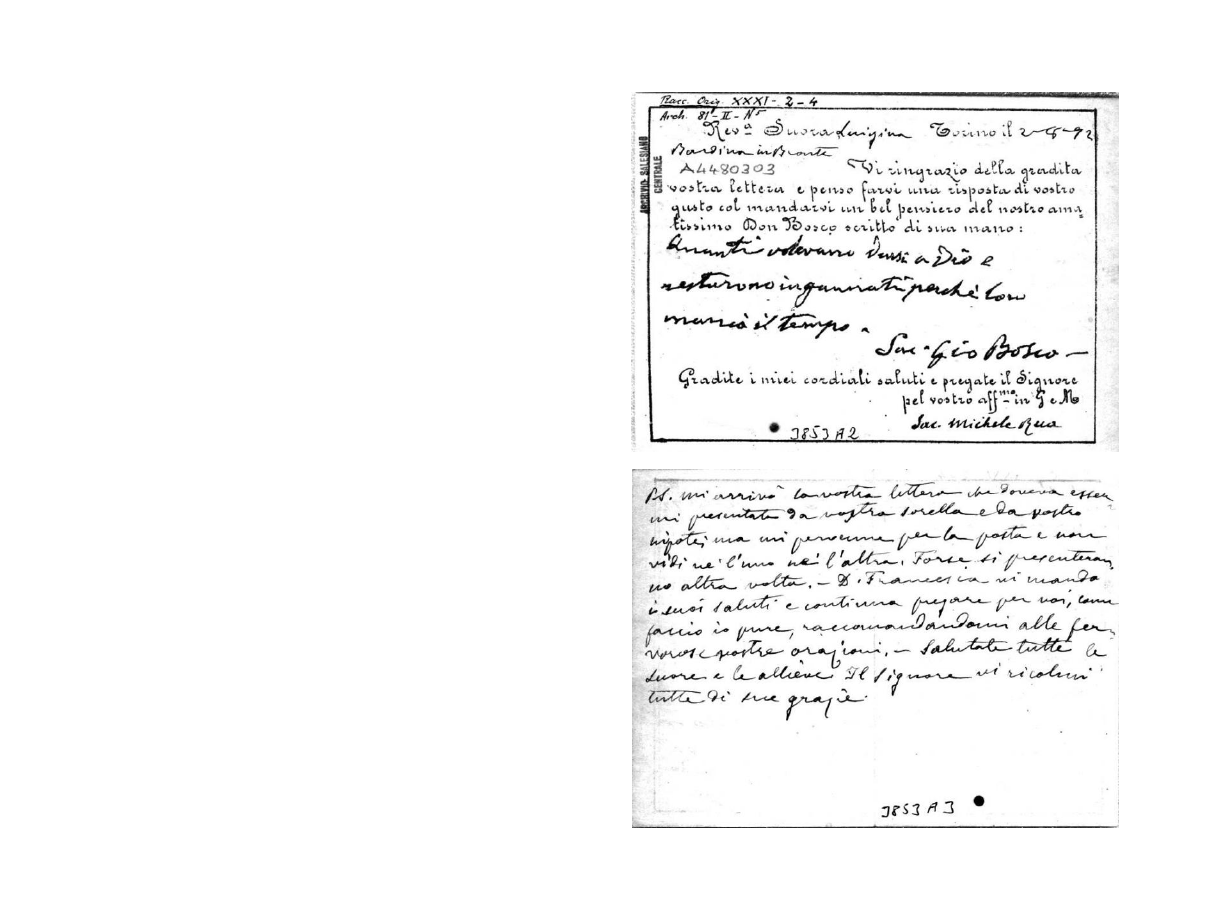 Racc. Orig. XXXI - 2 - 4
Arch. 81 - II - N 5
ARCHIVIO SALESIANO
CENTRALE
Revª Suora Luigina Torino il 2-8-92
Bardina in Bronte
A4480303 Vi ringrazio della gradita
vostra lettera e penso farvi una risposta di vostro
gusto col mandarvi un bel pensiero del nostro ama=
tissimo Don Bosco scritto di sua mano:
Quanti volevano darsi a Dio e
restarono ingannati perchè loro
mancò il tempo.
Sac. Gio Bosco -
Gradite i miei cordiali saluti e pregate il Signore
pel vostro affᵐᵒ in G e M
Sac. Michele Rua
3853 A 2
P.S. Mi arrivò la vostra lettera che doveva esser
mi presentata da vostra sorella e da vostro
nipote; ma mi pervenne per la posta e non
vidi nè l'uno nè l'altra. Forse si presenteran
no altra volta. - D. Francesia vi manda
i suoi saluti e continua pregare per voi, come
faccio io pure, raccomandandomi alle fer-
vorose vostre orazioni. - Salutate tutte le
suore e le allieve Il Signore vi ricolmi
tutte di sue grazie
3853 A 3